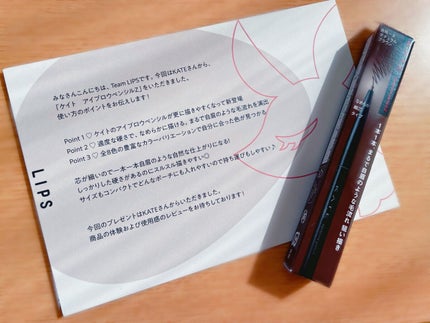 みなさんこんにちは、Team LIPSです。今回はKATEさんから、
「ケイト アイブロウペンシルZ」をいただきました。
使い方のポイントをお伝えします!
Point 1♡ ケイトのアイブロウペンシルが更に描きやすくなって新登場
Point 2♡ 適度な硬さで、なめらかに描ける。まるで自眉のような毛流れを演出
Point 3♡ 全8色の豊富なカラーバリエーションで自分に合った色が見つかる
芯が細いので一本一本自眉のような自然な仕上がりになる!
しっかりした硬さがあるのにスルスル描きやすい◎
サイズもコンパクトでどんなポーチにも入れやすいので持ち運びもしやすい♪
今回のプレゼントはKATEさんからいただきました。
商品の体験および使用感のレビューをお待ちしております!
LIPS
1本1本、まるで自眉のような毛流れ